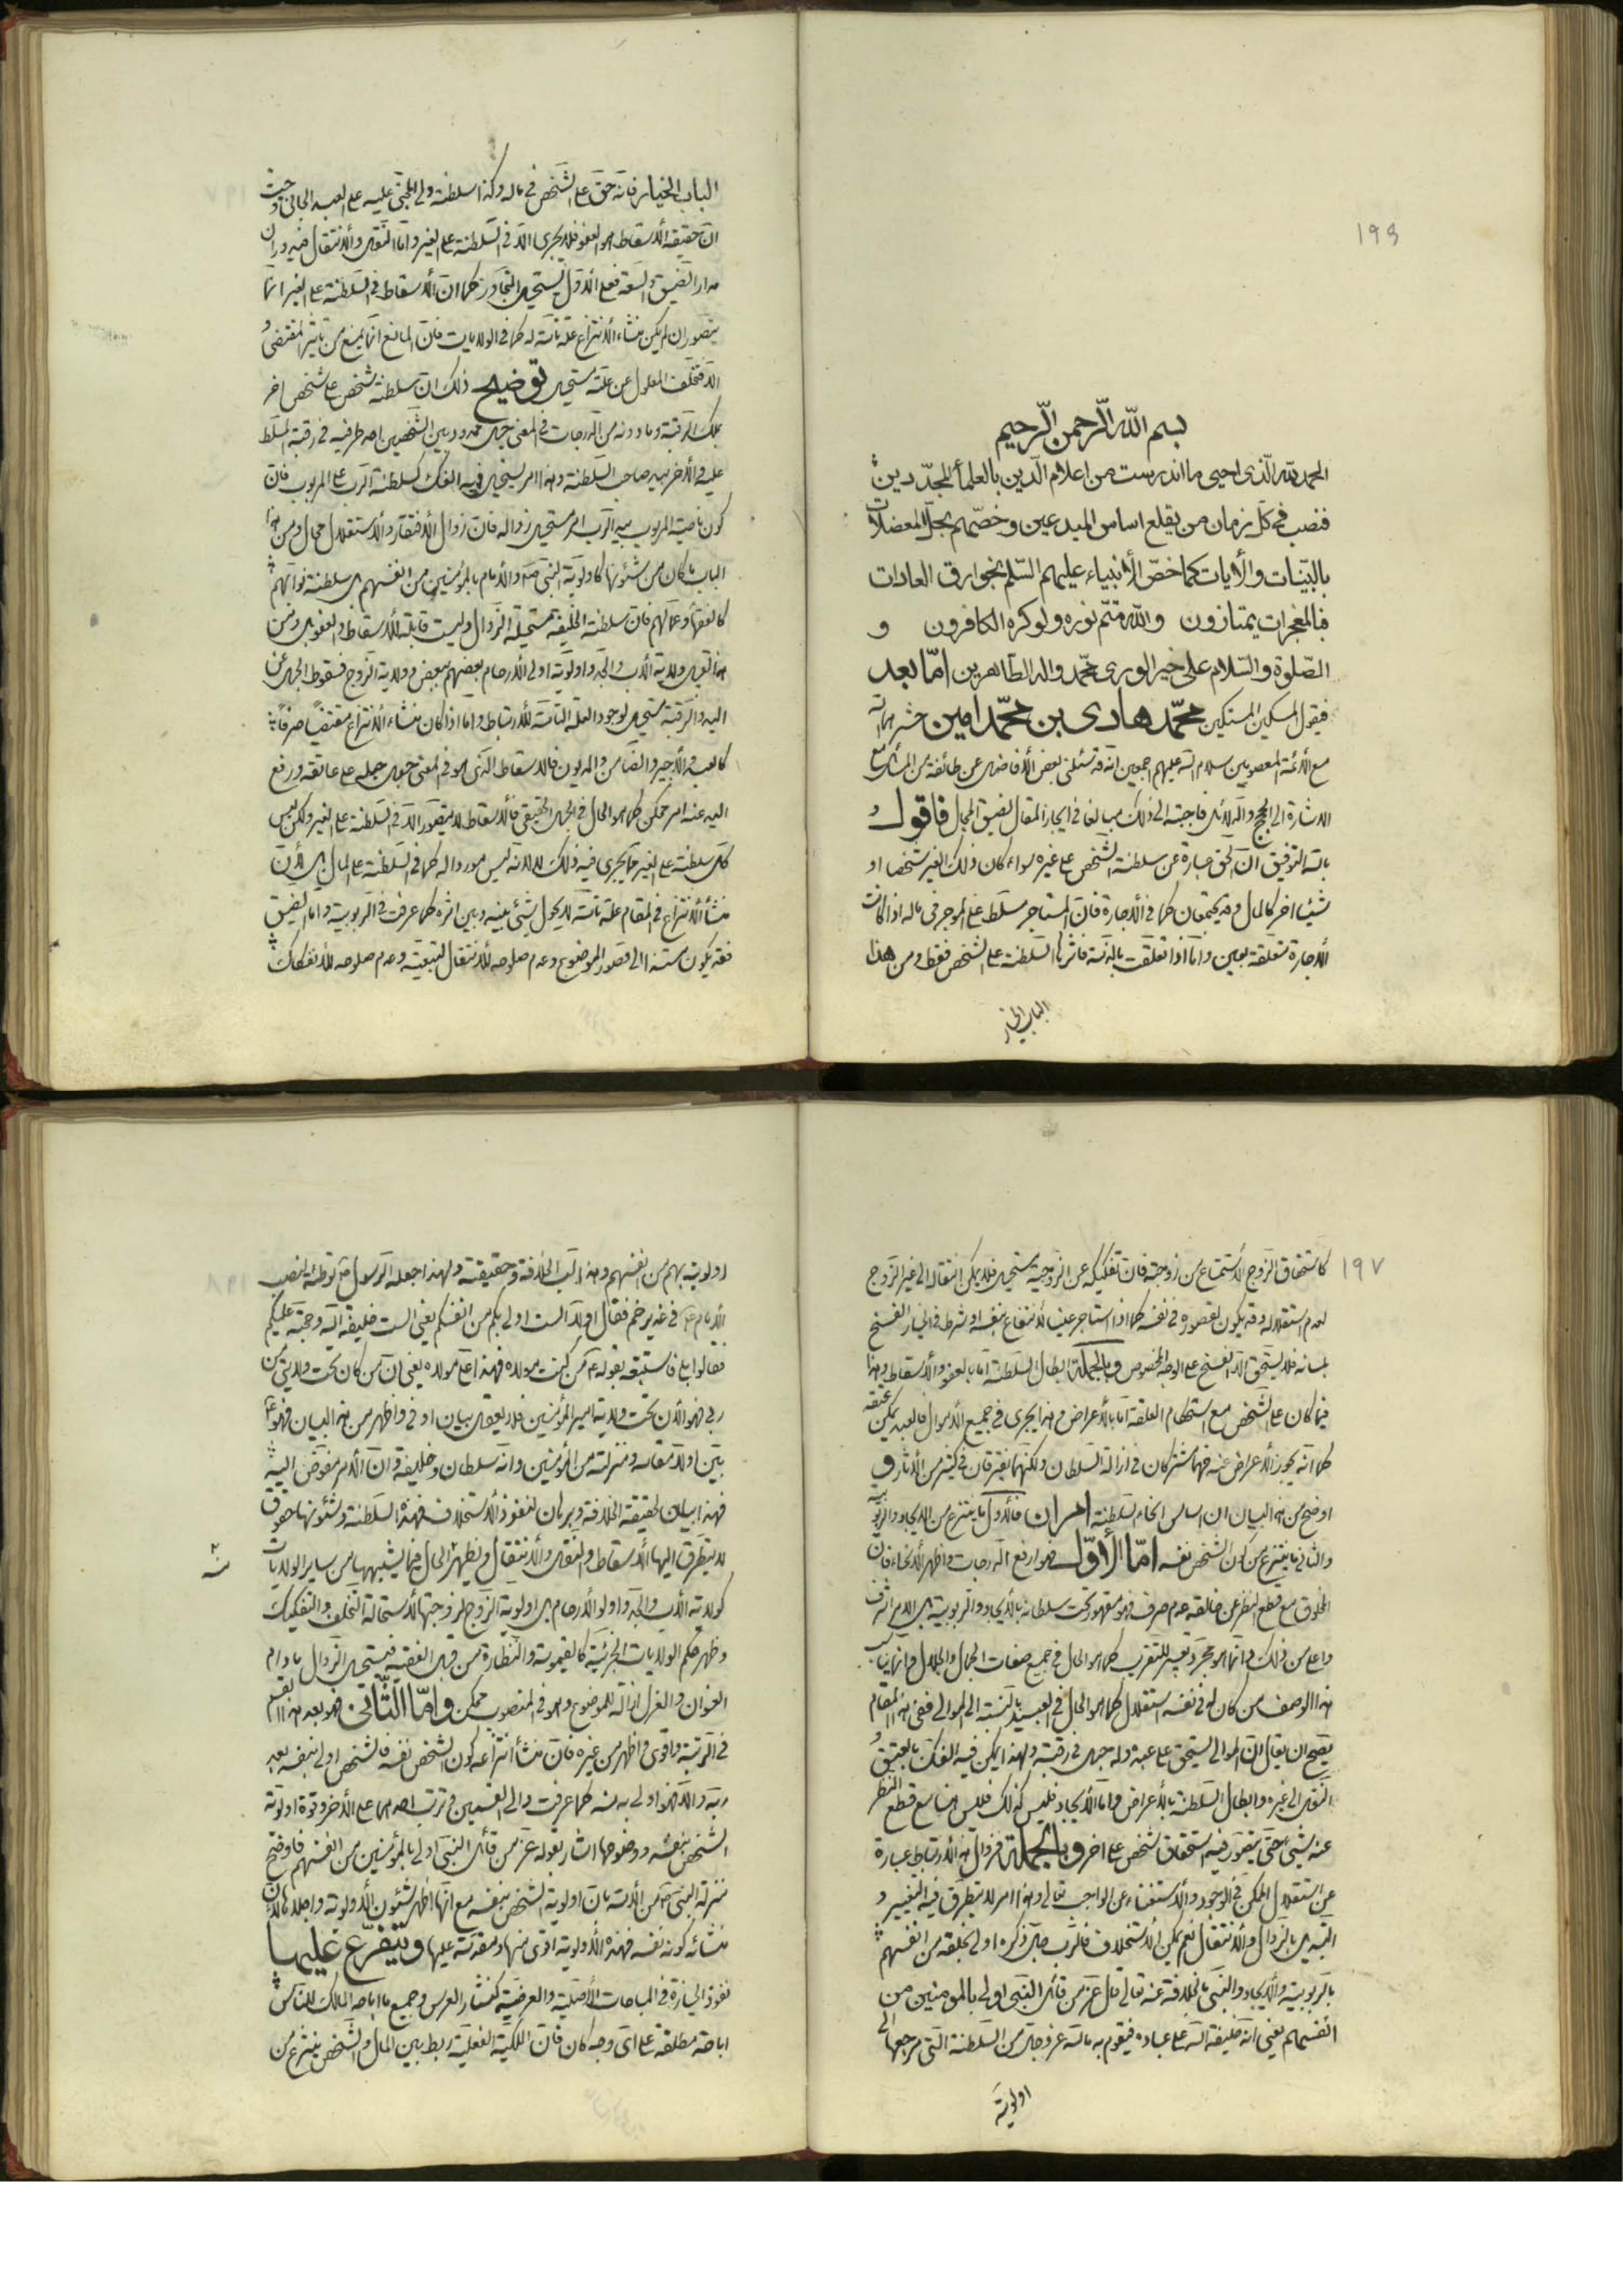 ١٩٦
بسم الله الرّحمن الرّحيم
الحمد لله الّذى احيى ما اندرست من اعلام الدّين بالعلمأ المجدّدين
فنصب فى كلّ زمان من يقلع اساس المبدعين وخصّهم بحلّ المعضلات
بالبيّنات والأيات كما خصّ الأنبياء عليهم السّلم بخوارق العادات
فبالمعجزات يمتازون والله متمّ نوره ولو كره الكافرون و
الصّلوة والسّلام على خير الورى محمّد واله الطّاهرين امّا بعد
فيقول المسكين المستكين محمّد هادى بن محمّد امين حشرهما الله
مع الأئمّة المعصومين سلام الله عليهم اجمعين انّه قد سئلنى بعض الأفاضل عن طائفة من المسائل مع
الاشارة الى الحجج والدّلائل فاجبته الى ذلك مبالغا فى ايجاز المقال لضيق المجال فاقول و
بالله التوفيق انّ الحق عبارة عن سلطنة الشّخص على غيره سواء كان ذلك الغير شخصا او
شيئا اخر كالمال وقد يجتمعان كما فى الأجارة فانّ المستاجر مسلّط على الموجر فى ماله اذا كانت
الأجارة متعلّقة بعين وامّا اذا تعلّقت بالذّمة فاثرها السّلطنة على الشّخص فقط ومن هذا
الباب الخيار
الباب الخيار فانّه حقّ على الشّخص فى ماله وكذا سلطنة ولى المجنى عليه على العبد الجانى وحيث
انّ حقيقة الأسقاط هو العفو فلا يجرى الّا فى السّلطنة على الغير وامّا النّقل والأنتقال فيدوران
مدار الضّيق والسّعة فعلى الأوّل يستحيل التّجاوز كما انّ الأسقاط فى السّلطنة على الغير انّما
يتصور ان لم يكن منشاء الأنتزاع علّة تامّة له كما فى الولايات فانّ المانع انّما يمنع من تاثير المقتضى و
الّا فتخلّف المعلول عن علّته مستحيل توضيح ذلك انّ سلطنة شخص على شخص اخر
بملك الرّقبة وما دونه من الدّرجات فى المعنى حبل ممدود بين الشّخصين احد طرفيه فى رقبة المسلّط
عليه والأخر بيد صاحب السّلطنة وهذا امر يستحيل فيه الفكّ كسلطنة الرّب على المربوب فانّ
كون ناصية المربوب بيد الرّب امر مستحيل زواله فانّ زوال الأفتقار والأستقلال محال ومن هذا
الباب ما كان من شئونها كاولويّة النّبى ص والأمام بالمؤمنين من انفسهم بل سلطنة نوّابهم
كالفقهأ وعمّالهم فانّ سلطنة الخليفة مستحيلة الزّوال وليست قابلة للأسقاط والعفو بل ومن
هذا القبيل ولاية الأب والجدّ واولويّة اولى الأرحام بعضهم ببعض وولاية الزّوج فسقوط الحبل عن
اليد والرّقبة مستحيل لوجود العلّة التّامّة للأرتباط وامّا اذا كان منشاء الأنتزاع مقتضيًا صرفًا
كالعبد والأجير والضّامن والمديون فالأسقاط الّذى هو فى المعنى جعل حبله على عاتقه ورفع
اليد عنه امر ممكن كما هو الحال فى الحبل الحقيقى فالأسقاط لا يتصوّر الّا فى السّلطنة على الغير ولكن ليس
كلّ سلطنة على الغير ممّا يجرى فيه ذلك لا لانّه ليس موردا له كما فى السّلطنة على المال بل لأنّ
منشأ الأنتزاع فى المقام علّة تامّة لا يحول شيئ بينه وبين اثره كما عرفت فى الرّبوبية وامّا الضّيق
فقد يكون مستندا الى قصور الموضوع وعدم صلوحه للأنتقال لتبعيّته وعدم صلوحه للأنفكاك
١٩٧
كاستحقاق الزّوج الأستمتاع من زوجته فانّ تفكيكه عن الزّوجيّة مستحيل فلا يمكن انتقاله الى غير الزّوج
لعدم استقلاله وقد يكون لقصوره فى نفسه كما اذا استاجر عينا للأنتفاع بنفسه او شرط فى الخيار الفسخ
بلسانه فلا يستحق الّا الفسخ على الوجه المخصوص وبالجملة ابطال السّلطنة امّا بالعفو والأسقاط وهذا
فيما كان على الشّخص مع استحكام العلقة امّا بالأعراض وهذا يجرى فى جميع الأموال فالعبد يمكن عتقه
كما انّه يجوز الأعراض عنه فهما مشتركان فى ازالة السّلطان ولكنّهما يفترقان فى كثير من الأثار و
اوضح من هذا البيان ان اساس انحاء السّلطنة امران فالأوّل ما ينتزع من الايجاد والرّبوبيّة
والثانى ما ينتزع من كون الشّخص نفسه امّا الأوّل فهو ارفع الدّرجات واظهر الأنحاء فانّ
المخلوق مع قطع النّظر عن خالقه عدم صرف فهو مقهور تحت سلطانه بالأيجاد والرّبوبيّة بل الامر اشرف
واعلى من ذلك وانّما هو مجرّد تعبير للتّقريب كما هو الحال فى جميع صفات الجمال والجلال وانّما يناسب
هذا الوصف من كان له فى نفسه استقلال كما هو الحال فى العبيد بالنّسبة الى الموالى ففى هذا المقام
يصحّ ان يقال انّ الموالى يستحق على عبده وله حبل فى رقبته ولهذا يمكن فيه الفكّ بالعتق و
النّقل الى غيره وابطال السّلطنة بالأعراض وامّا الأيجاد فليس كذلك فليس هنا مع قطع النّظر
عنه شيئ حتّى يتصوّر فيه استحقاق شخص على اخر وبالجملة فزوال هذا الأرتباط عبارة
عن استقلال الممكن فى الوجود والأستغناء عن الواجب تعالى وهذا امر لا يتطرّق فيه التّغيير و
التّبديل بالزّوال والأنتقال نعم يمكن الأستخلاف فالرّب جلّ ذكره اولى بخلقه من انفسهم
بالرّبوبيّة والأيجاد والنّبى بالخلافة عنه تعالى قال عزّ من قائل النّبى اولى بالمومنين من
انفسهم يعنى انّه خليفة الله على عباده فيقوم به ما لله عزّ وجلّ من السّلطنة الّتى مرجعها الى
اولويّة
اولويته بهم من انفسهم وهذا لبّ الخلافة وحقيقته ولهذا جعله الرّسول ص توطئة لنصب
الأمام ع فى غدير خم فقال اوّلا الست اولى بكم من انفسكم يعنى الست خليفة الله وحجّته عليكم
فقالوا بلى فاستتبعه بقوله ع من كنت مولاه فهذا علىّ مولاه يعنى انّ من كان تحت ولايتى من
ربى فهو الأن تحت ولاية امير المؤمنين فلا يعقل بيان اوفى واظهر من هذا البيان فهو ع
بيّن اولا مقامه ومنزلته من المؤمنين وانّه سلطان وخليفة وان الأمر مفوّض اليه
فهذا بيان لحقيقة الخلافة وبرهان لنفوذ الأستخلاف فهذه السّلطنة وشئونها حقوق
لا يتطرّق اليها الأسقاط والنّقل والأنتقال ويظهر الحال فيما يشبهها من ساير الولايات
كولاية الأب والجدّ واولو الأرحام بل اولوية الزّوج لزوجتها لأستحالة التّخلّف والتّفكيك
وظهر حكم الولايات الجزئيّة كالقيمومة والنّظارة من قبل الفقيه فيستحيل الزّوال ما دام
العنوان والعزل ازالة للموضوع وهو فى المنصوب ممكن وامّا الثّانى فهو بعد هذا القسم
فى الرّتبة واقوى واظهر من غيره فانّ منشأ انتزاعه كون الشّخص نفسه فالشّخص اولى بنفسه بعد
ربّه والّا فهو اولى به منه كما عرفت والى القسمين وترتّب احدهما على الأخر وقوة اولويّة
الشّخص بنفسه ووضوحها اشار بقوله عزّ من قائل النّبى اولى بالمؤمنين من انفسهم فاوضح
منزلة النّبى ص من الأمّة بانّ اولوية الشّخص بنفسه مع انّها اظهر شئون الأولوية واجلاها لأنّ
منشائه كونه نفسه فهذه الأولوية اقوى منها ومقدّمة عليها ويتفرّع عليها
نفوذ الحيازة فى المباحات الأصليّة والعرضيّة كنثار العرس وجميع ما اباحه المالك للنّاس
اباحة مطلقة على اىّ وجه كان فانّ الملكيّة الفعليّة ربط بين المال والشّخص ينتزع من